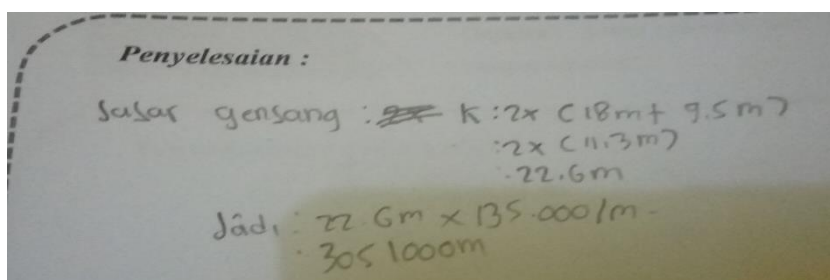 Penyelesaian :
Jajar genjang : K : 2x (18m + 9.5m)
: 2x (11.3m)
: 22.6m
Jadi : 22.6m x 135.000/m
: 3051000m